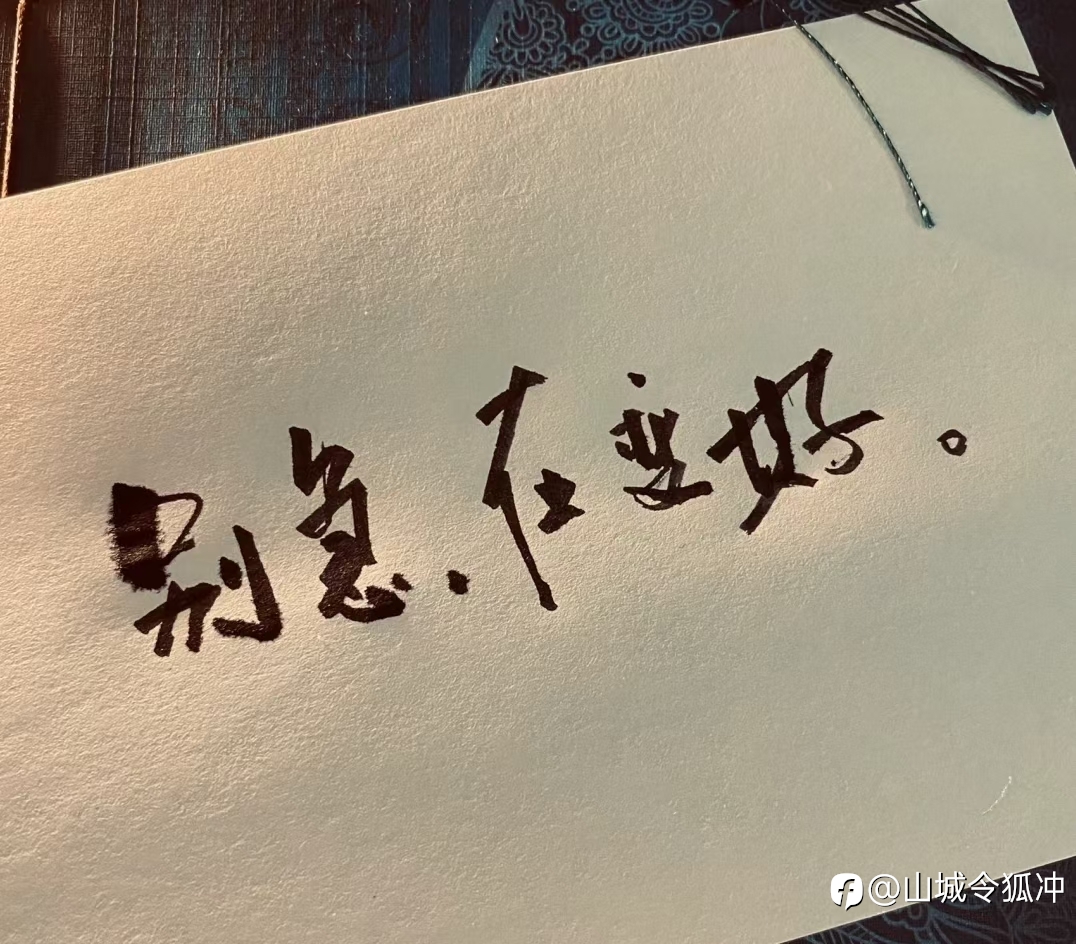 别急.在变好。
@山城令狐冲